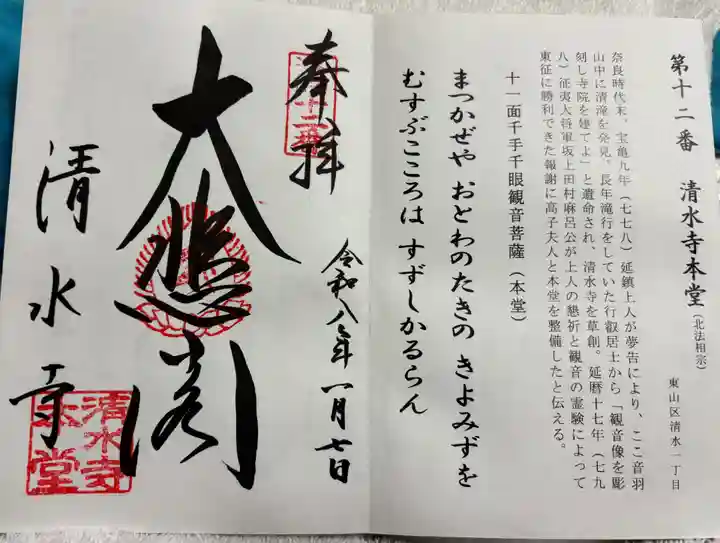 第十二番 清水寺本堂(北法相宗)
東山区清水一丁目
奈良時代末、宝亀九年(七七八)延鎮上人が夢告により、ここ音羽
山中に清滝を発見。長年滝行をしていた行叡居士から「観音像を彫
刻し寺院を建てよ」と遺命され、清水寺を草創。延暦十七年(七九
八)征夷大将軍坂上田村麻呂公が上人の懇祈と観音の霊験によって
東征に勝利できた報謝に高子夫人と本堂を整備したと伝える。
十一面千手千眼観音菩薩(本堂)
まつかぜや おとわのたきの きよみずを
むすぶこころは すずしかるらん
奉拝
十二番
令和八年一月七日
大悲閣
清水寺
清水寺
本堂